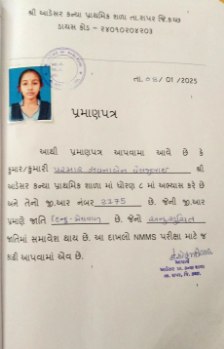 શ્રી આડેસર કન્યા પ્રાથમિક શાળા તા.રાપર જિ.કચ્છ
ડાયસ કોડ - ૨૪૦૧૦૨૦૪૨૦૩
તા. ૦૪/ 01 /2025
પ્રમાણપત્ર
આથી પ્રમાણપત્ર આપવામાં આવે છે કે
કુમાર/કુમારી પરમાર શ્રી
આડેસર કન્યા પ્રાથમિક શાળા માં ધોરણ ૮ માં અભ્યાસ કરે છે
અને તેનો જી.આર નંબર 2175 છે. જેની જી.આર
પ્રમાણે જાતિ હિન્દુ - છે. જેનો અનુસૂચિત
જાતિમાં સમાવેશ થાય છે. આ દાખલો NMMS પરીક્ષા માટે જ
કાઢી આપવામાં એવ છે.
આચાર્ય